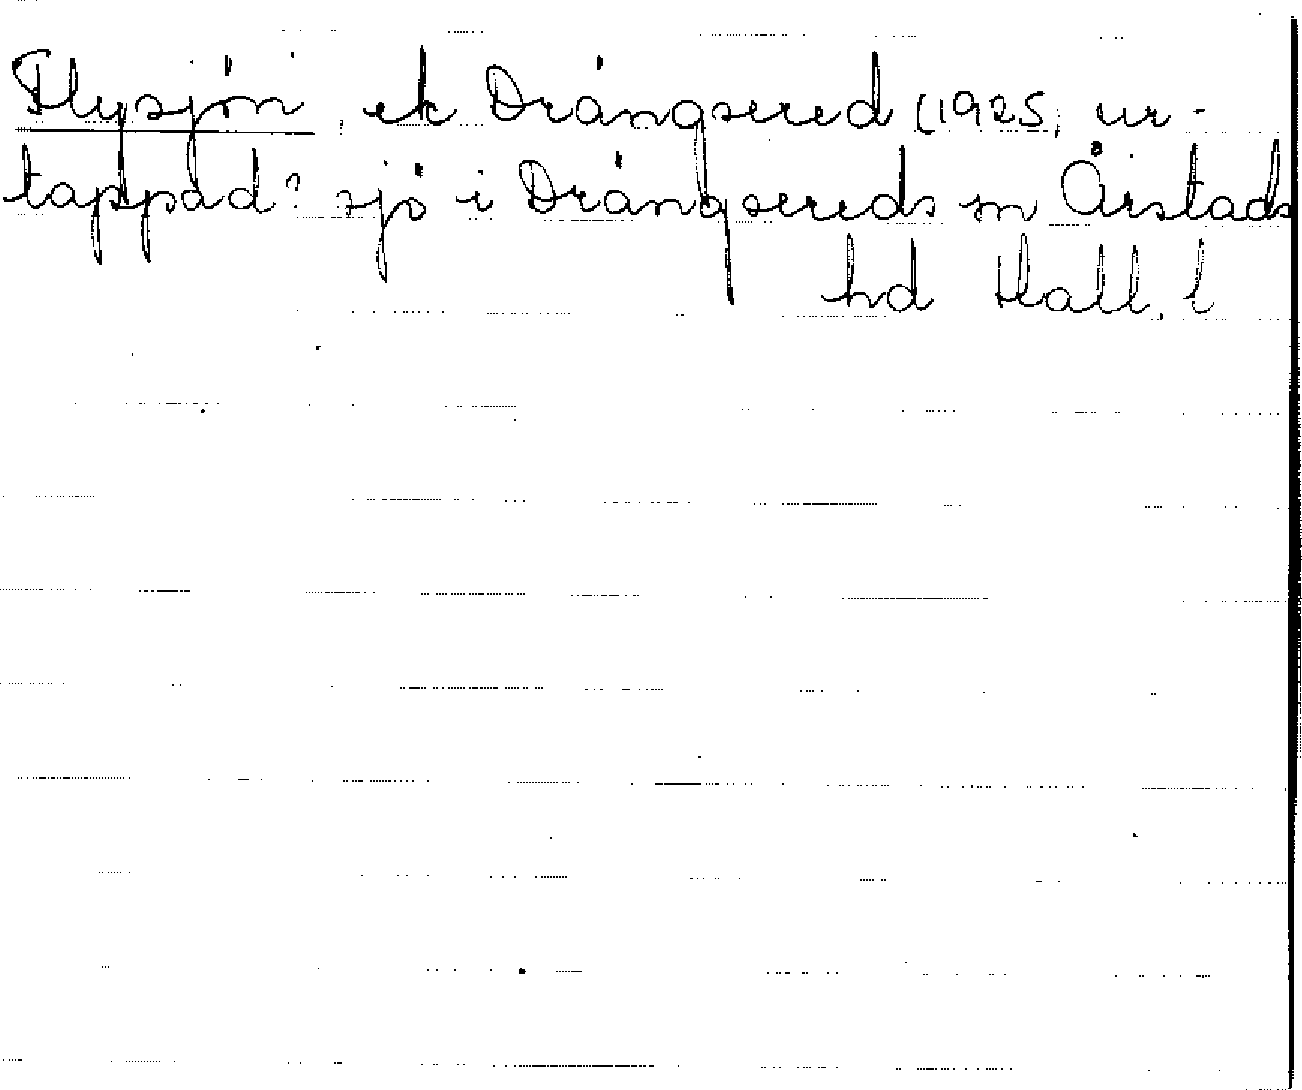 Flysjön, ek Drängsered (1925, ur-
tappad? sjö i Drängsereds sn Årstads
hd Hall. l